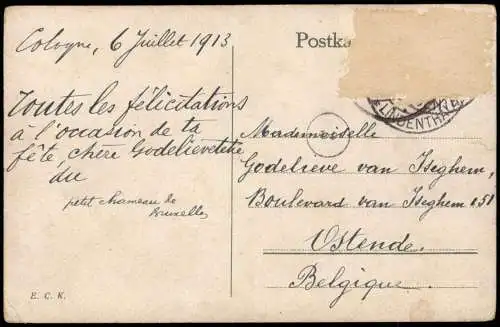 Cologne, 6 Juillet 1913
Postka
LINDENTHAL
Toutes les félicitations
à l'occasion de ta
fête, chère Godelievetche
du
petit chameau de
Bruxelles
Mademoiselle
Godelieve van Iseghem,
Boulevard van Iseghem 151
Ostende.
Belgique.
E. C. K.